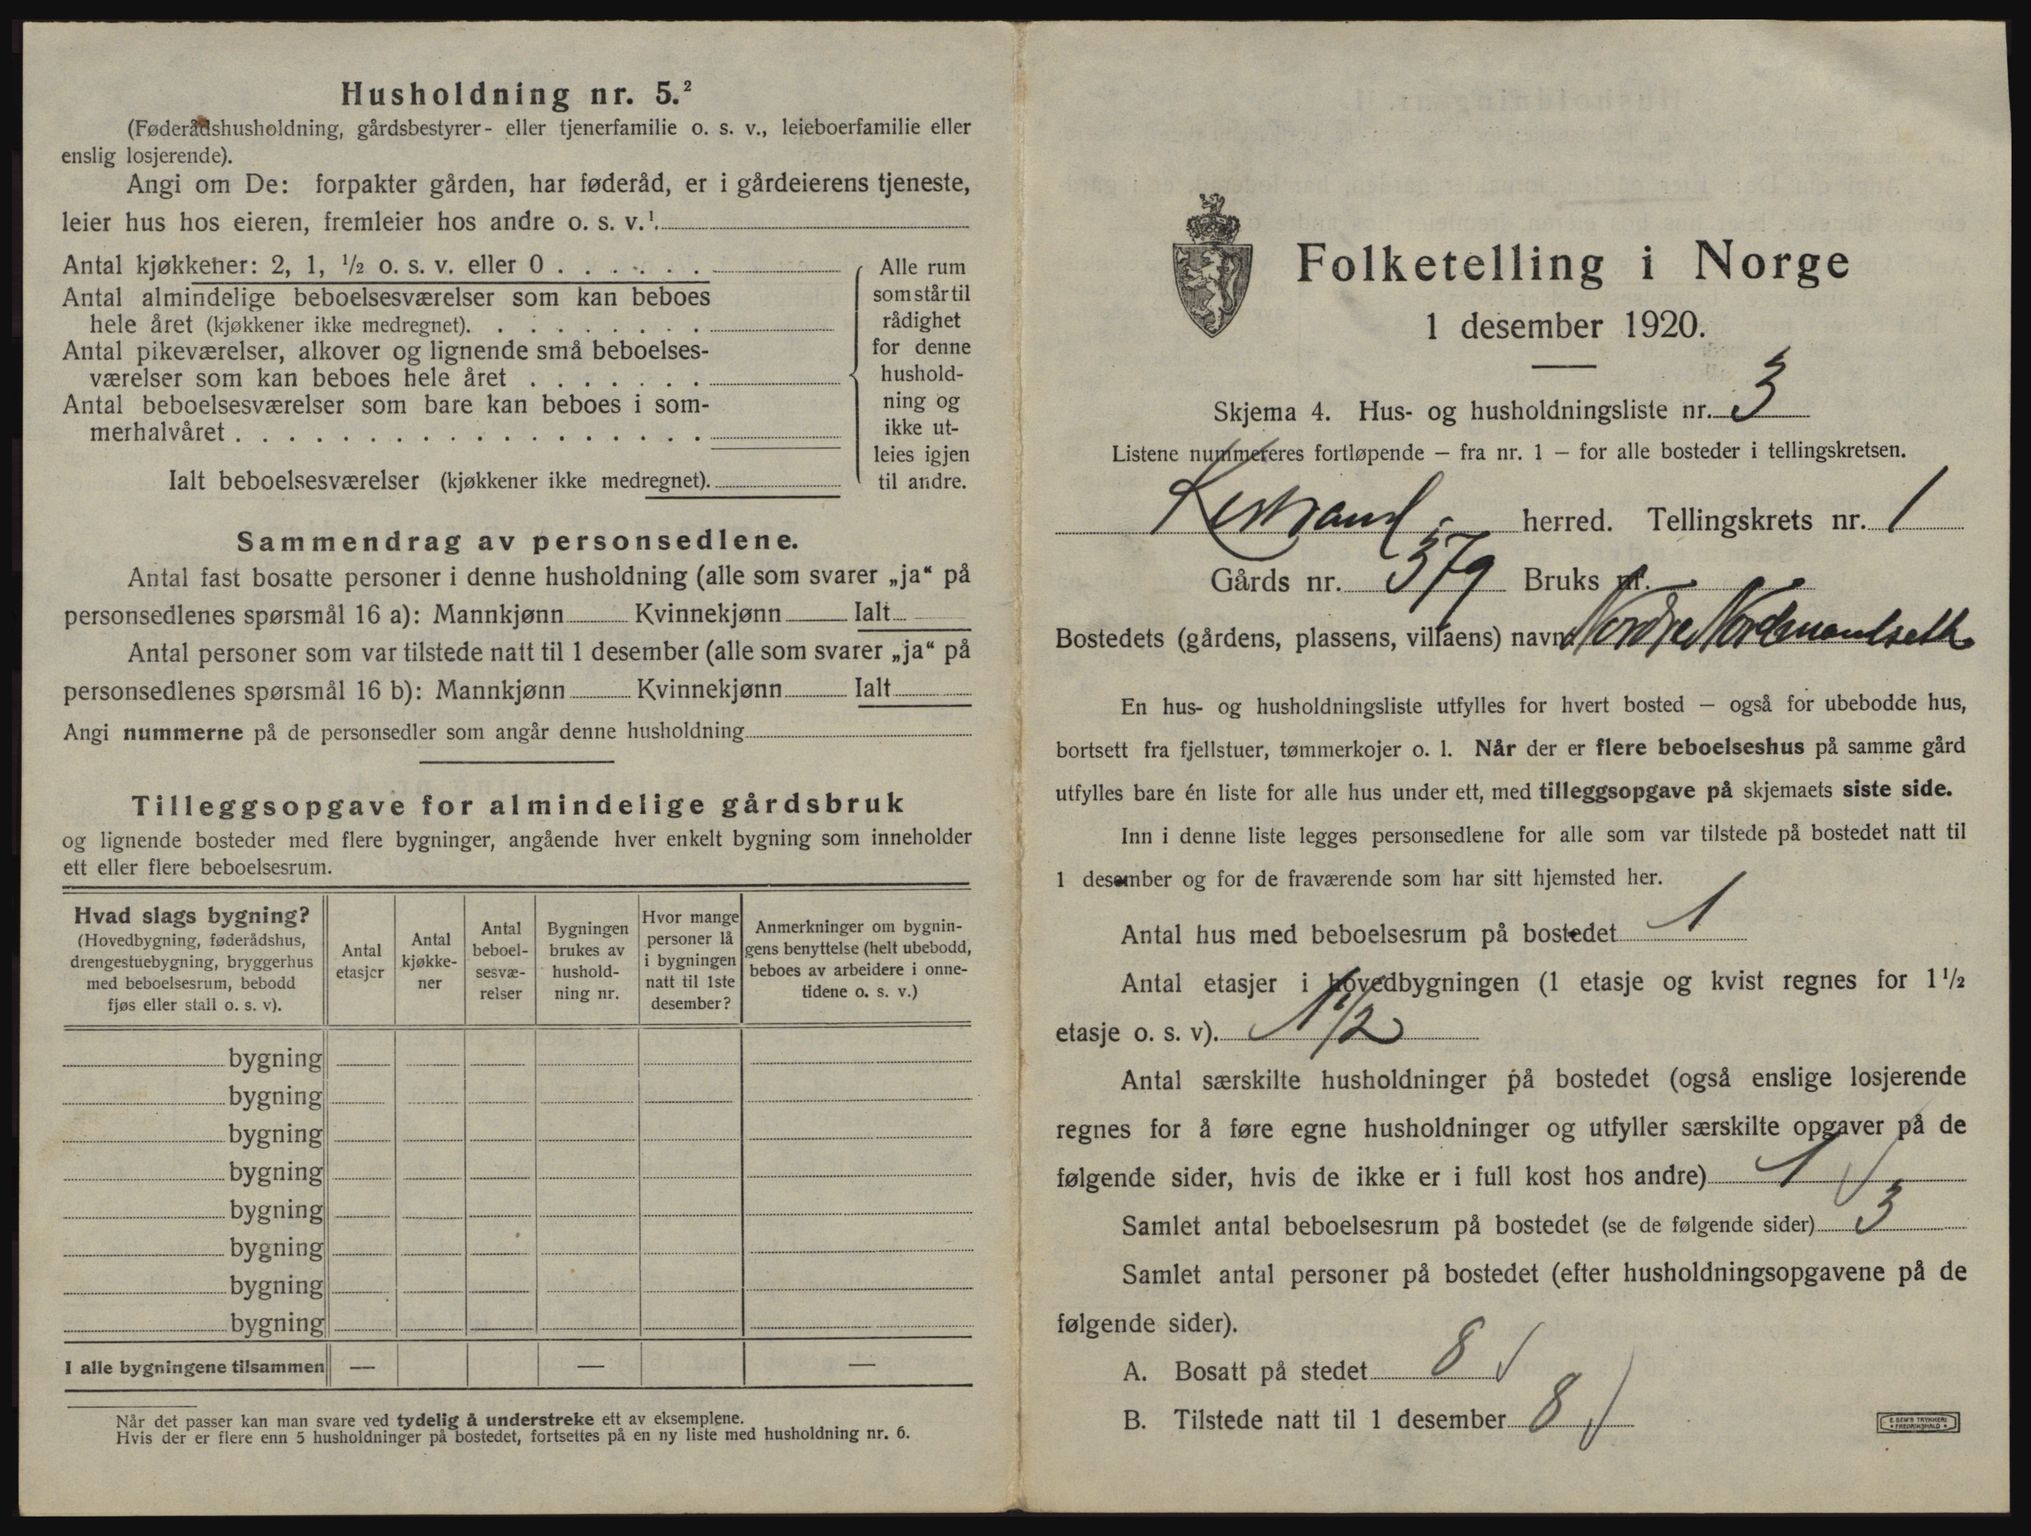 Husholdning nr. 5.²
(Føderådshusholdning, gårdsbestyrer- eller tjenerfamilie o. s. v., leieboerfamilie eller
enslig losjerende).
Angi om De: forpakter gården, har føderåd, er i gårdeierens tjeneste,
leier hus hos eieren, fremleier hos andre o. s. v.¹.
Antal kjøkkener: 2, 1, ¹/₂ o. s. v. eller 0 . . . . . .
Antal almindelige beboelsesværelser som kan beboes
hele året (kjøkkener ikke medregnet). . . . . . . . .
Antal pikeværelser, alkover og lignende små beboelses-
værelser som kan beboes hele året . . . . . . .
Antal beboelsesværelser som bare kan beboes i som-
merhalvåret . . . . . . . . . . . . . . . . . .
Ialt beboelsesværelser (kjøkkener ikke medregnet).
Alle rum
som står til
rådighet
for denne
hushold-
ning og
ikke ut-
leies igjen
til andre.
Sammendrag av personsedlene.
Antal fast bosatte personer i denne husholdning (alle som svarer „ja“ på
personsedlenes spørsmål 16 a): Mannkjønn Kvinnekjønn Ialt
Antal personer som var tilstede natt til 1 desember (alle som svarer „ja“ på
personsedlenes spørsmål 16 b): Mannkjønn Kvinnekjønn Ialt
Angi nummerne på de personsedler som angår denne husholdning
Tilleggsopgave for almindelige gårdsbruk
og lignende bosteder med flere bygninger, angående hver enkelt bygning som inneholder
ett eller flere beboelsesrum.
Hvad slags bygning?
(Hovedbygning, føderådshus,
drengestuebygning, bryggerhus
med beboelsesrum, bebodd
fjøs eller stall o. s. v).
Antal
etasjer
Antal
kjøkke-
ner
Antal
beboel-
sesvæ-
relser
Bygningen
brukes av
hushold-
ning nr.
Hvor mange
personer lå
i bygningen
natt til 1ste
desember?
Anmerkninger om bygnin-
gens benyttelse (helt ubebodd,
beboes av arbeidere i onne-
tidene o. s. v.)
bygning
bygning
bygning
bygning
bygning
bygning
bygning
bygning
I alle bygningene tilsammen — — —
Når det passer kan man svare ved tydelig å understreke ett av eksemplene.
Hvis der er flere enn 5 husholdninger på bostedet, fortsettes på en ny liste med husholdning nr. 6.
Folketelling i Norge
1 desember 1920.
Skjema 4. Hus- og husholdningsliste nr. 3
Listene nummereres fortløpende – fra nr. 1 – for alle bosteder i tellingskretsen.
Kistrand herred. Tellingskrets nr. 1
Gårds nr. 379 Bruks nr.
Bostedets (gårdens, plassens, villaens) navn Nordre Nordmandseth
En hus- og husholdningsliste utfylles for hvert bosted – også for ubebodde hus,
bortsett fra fjellstuer, tømmerkojer o. l. Når der er flere beboelseshus på samme gård
utfylles bare én liste for alle hus under ett, med tilleggsopgave på skjemaets siste side.
Inn i denne liste legges personsedlene for alle som var tilstede på bostedet natt til
1 desember og for de fraværende som har sitt hjemsted her.
Antal hus med beboelsesrum på bostedet 1
Antal etasjer i hovedbygningen (1 etasje og kvist regnes for 1 ¹/₂
etasje o. s. v). 1 1/2
Antal særskilte husholdninger på bostedet (også enslige losjerende
regnes for å føre egne husholdninger og utfyller særskilte opgaver på de
følgende sider, hvis de ikke er i full kost hos andre) 1 √
Samlet antal beboelsesrum på bostedet (se de følgende sider) 3
Samlet antal personer på bostedet (efter husholdningsopgavene på de
følgende sider).
A. Bosatt på stedet 8 √
B. Tilstede natt til 1 desember 8 √
E. SEM'S TRYKKERI
• FREDRIKSHALD •